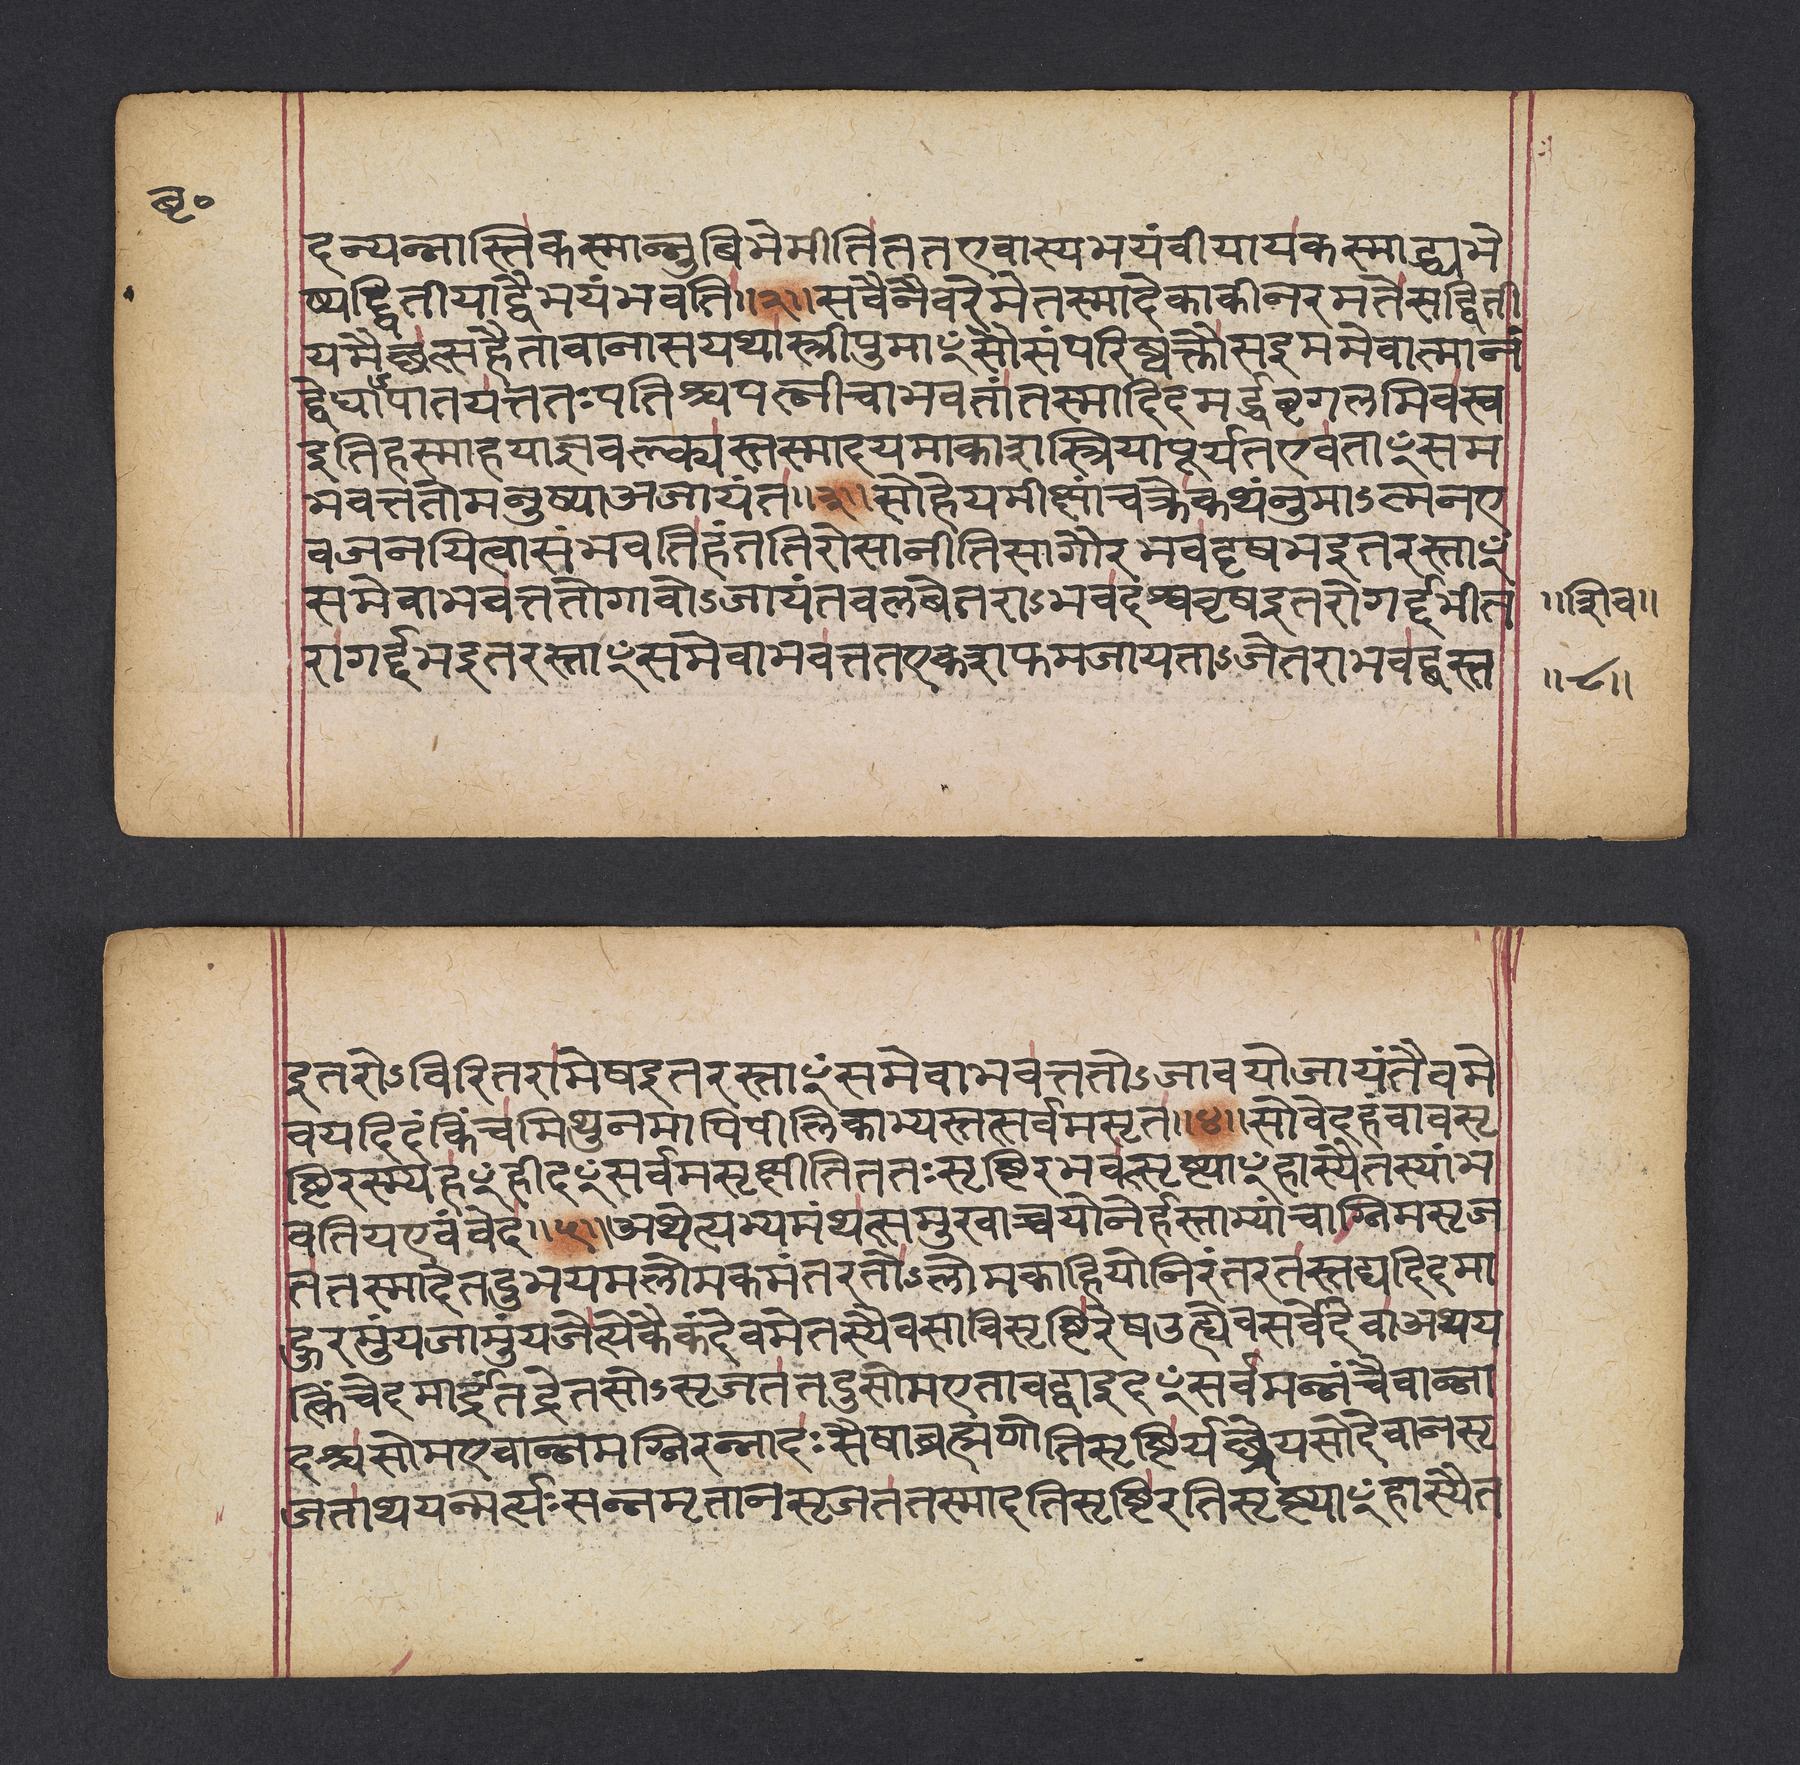 बृ०
दन्यन्नास्तिकस्मान्नुबिभेमीतिततएवास्यभयंवीयायकस्माद्ध्यभे
ष्यद्द्वितीयाद्वैभयंभवति॥२॥सवैनैवरेमेतस्मादेकाकीनरमतेसद्विती
यमैच्छत्सहैतावानासयथास्त्रीपुमाꣳसौसंपरिष्वक्तौसइममेवात्मानं
द्वेधापातयत्ततःपतिश्चपत्नीचाभवतांतस्मादिदमर्द्धबृगलमिवस्व
इतिहस्माहयाज्ञवल्क्यस्तस्मादयमाकाशःस्त्रियापूर्यतएवताꣳसम
भवत्ततोमनुष्याअजायंत॥३॥सोहेयमीक्षांचक्रेकथंनुमाऽत्मनए
वजनयित्वासंभवतिहंततिरोसानीतिसागौरभवदृषभइतरस्ताꣳ
समेवाभवत्ततोगावोऽजायंतवलबेतराऽभवदश्ववृषइतरोगर्द्दभीत
॥शिव॥
रागर्द्दभइतरस्ताꣳसमेवाभवत्ततएकशफमजायताऽजेतराभवद्वस्त
॥८॥
इतरोऽविरितरामेषइतरस्ताꣳसमेवाभवत्ततोऽजावयोजायंतैवमे
वयदिदंकिंचमिथुनमापिपीलिकाभ्यस्तत्सर्वमसृजत॥४॥सोवेदहंवावसृ
ष्टिरस्म्यहꣳहीदꣳसर्वमसृक्षीतिततःसृष्टिरभवत्सृष्ट्याꣳहास्यैतस्यांभ
वतियएवंवेद॥५॥अथेत्यभ्यमंथत्समुखाच्चयोनेर्हस्ताभ्यांचाग्निमसृज
ततस्मादेतदुभयमलोमकमंतरतोऽलोमकाहियोनिरंतरतस्तद्यदिदमा
हुरमुंयजामुंयजेत्येकैकंदेवमेतस्यैवसाविसृष्टिरेषउह्येवसर्वेदेवाअथय
त्किंचेदमार्द्रंतद्रेतसोऽसृजततदुसोमएतावद्वाइदꣳसर्वमन्नंचैवान्ना
दश्चसोमएवान्नमग्निरन्नादःसैषाब्रह्मणोतिसृष्टिर्यच्छ्रेयसोदेवानसृ
जताथयन्मर्त्यःसन्नमृतानसृजततस्मादतिसृष्टिरतिसृष्ट्याꣳहास्यैत